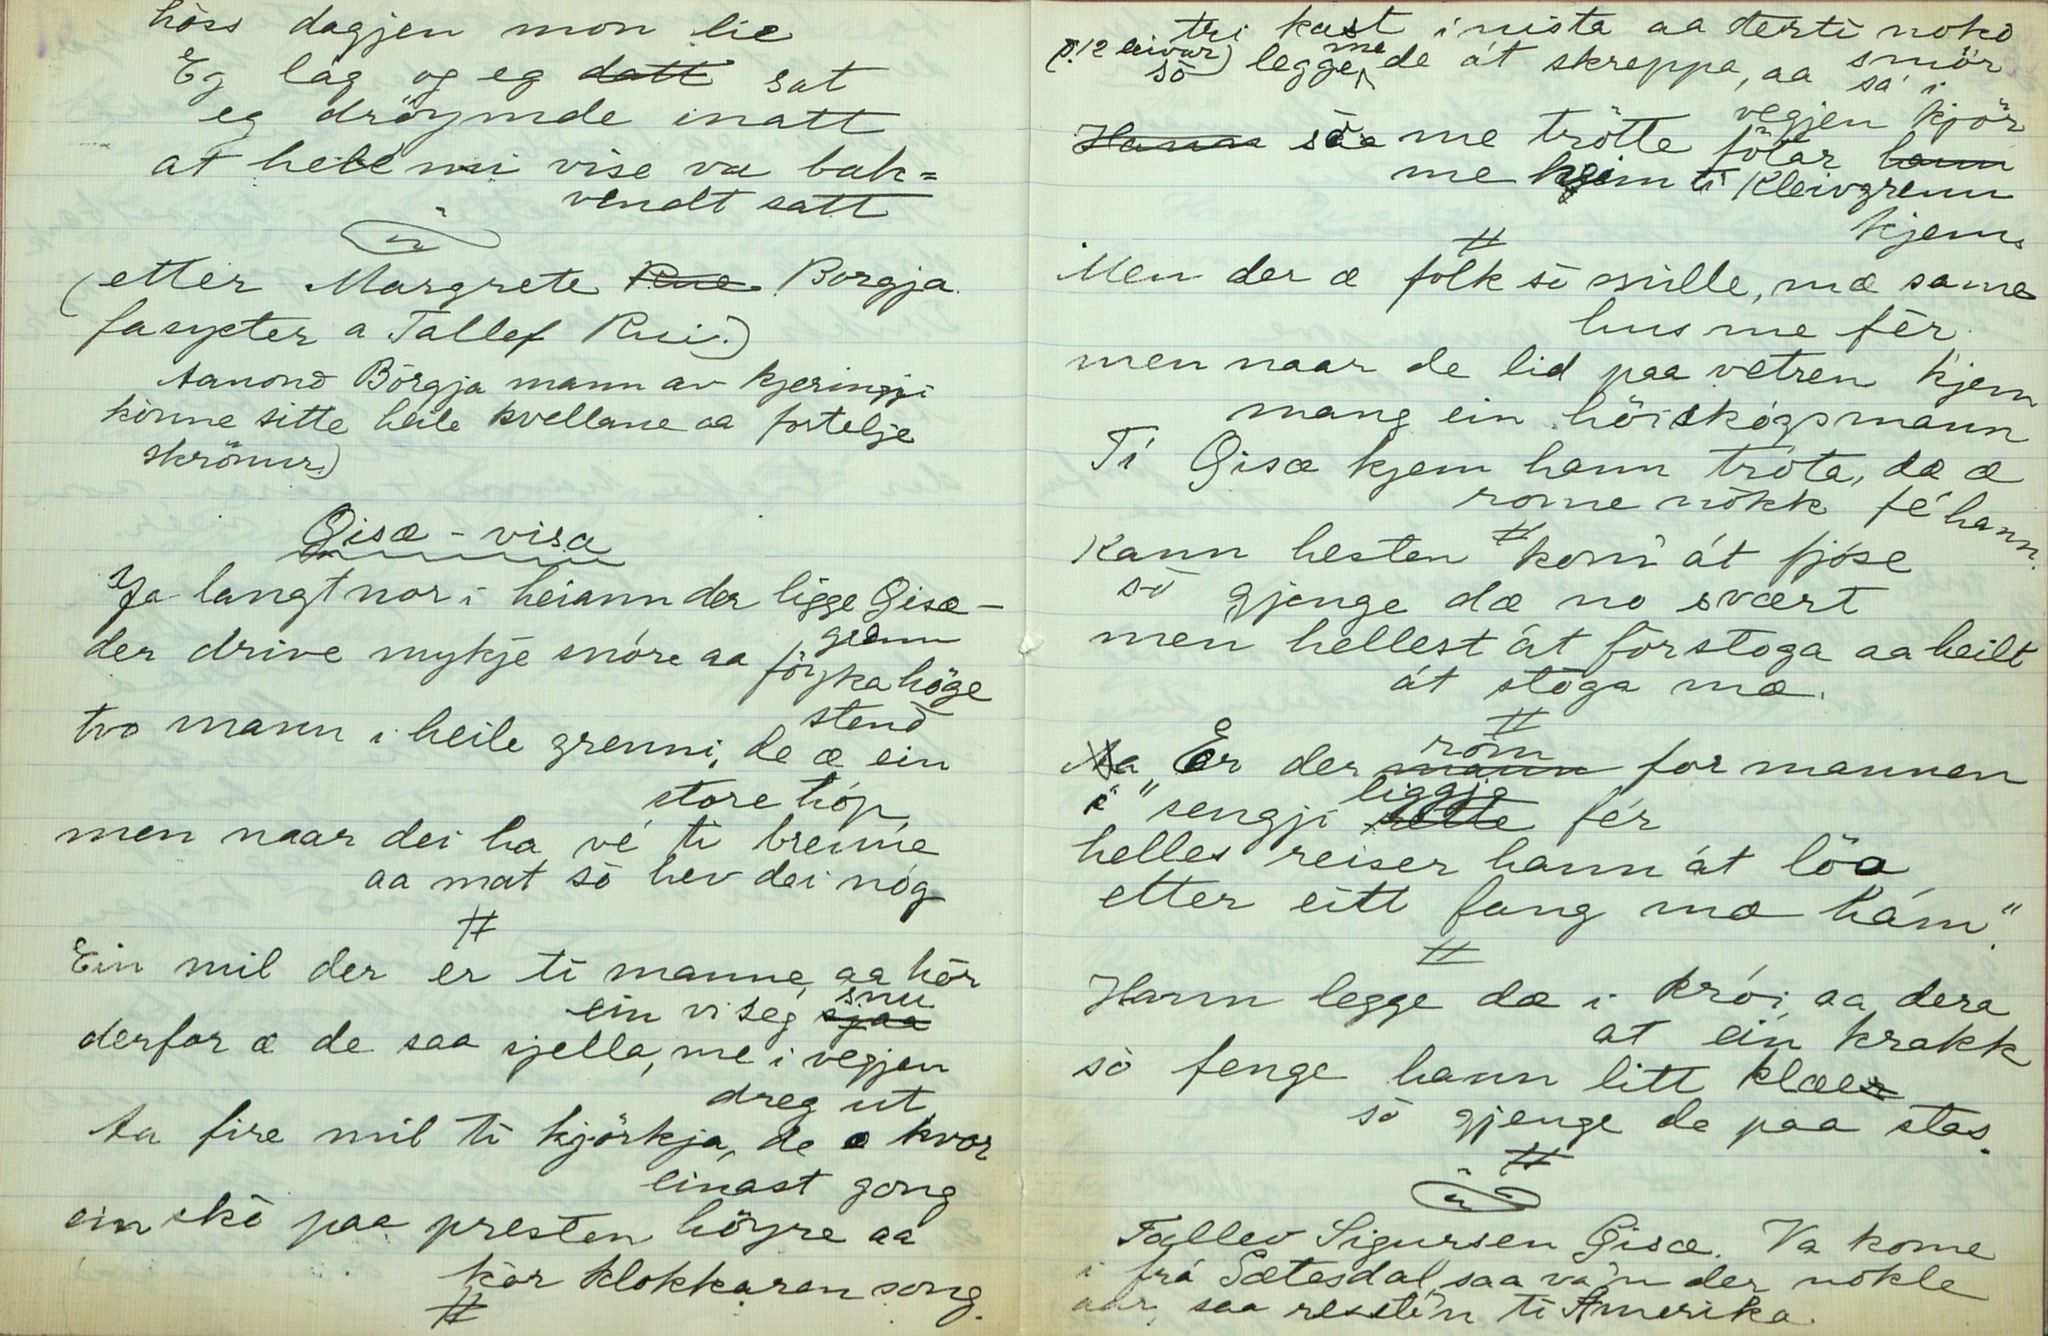 höss dagjen mon lie
Eg låg og eg datt sat
eg dröymde inatt
at heile mi vise va bak=
vendt satt
(etter Margrete Rue Borgja
fasyster a Tallef Rui.)
Aanond Börgja mann av kjeringji
könne sitte heile kvellane aa fortelje
skrönur.)
Gisæ - visa
Ja langt nor i heiann der ligge Gisæ-
grenn
der drive mykje snóre aa föyka höge
stend
tvo mann i heile grenni, de æ ein
store hóp
men naar dei ha vé ti brenne
aa mat sö hev dei nóg
#
Ein mil der er ti manne, aa hör
ein vi seg sjaa snu
derfor æ de saa sjella, me i vegjen
dreg ut
Aa fire mil ti kjörkja, de æ kvor
einast gong
ein skö paa presten höyre aa
kör klokkaren song.
#
tri kast i nista aa terti noko
smör
(p. 12 leivar) sö legge me de át skreppa, aa så i
vegjen kjör
Hann söa me trötte fötar hann
me heim ti Kleivgrenn
kjem.
#
Men der æ folk sö snille, mæ same
hus me fér
men naar de lid paa vetren kjem
mang ein höiskógsmann
Ti Gisæ kjem hann tróta, dæ æ
rome nökk fé hann.
#
Kann hesten kom át fjóse
sö gjenge dæ no svært
men hellest át forstoga aa heilt
át stoga mæ.
#
Aa "Er der mann röm for mannen
i" sengji rette liggja fér
helles reiser hann át löa
etter eitt fang mæ hám."
#
Hann legge dæ i krói aa dera
at ein krakk
sö fenge hann litt klæer
sö gjenge de paa stas.
#
Tallev Sigursen Gisæ. Va kome
i frå Sætesdal, saa va'n der nokle
aar, saa reiste'n ti Amerika.